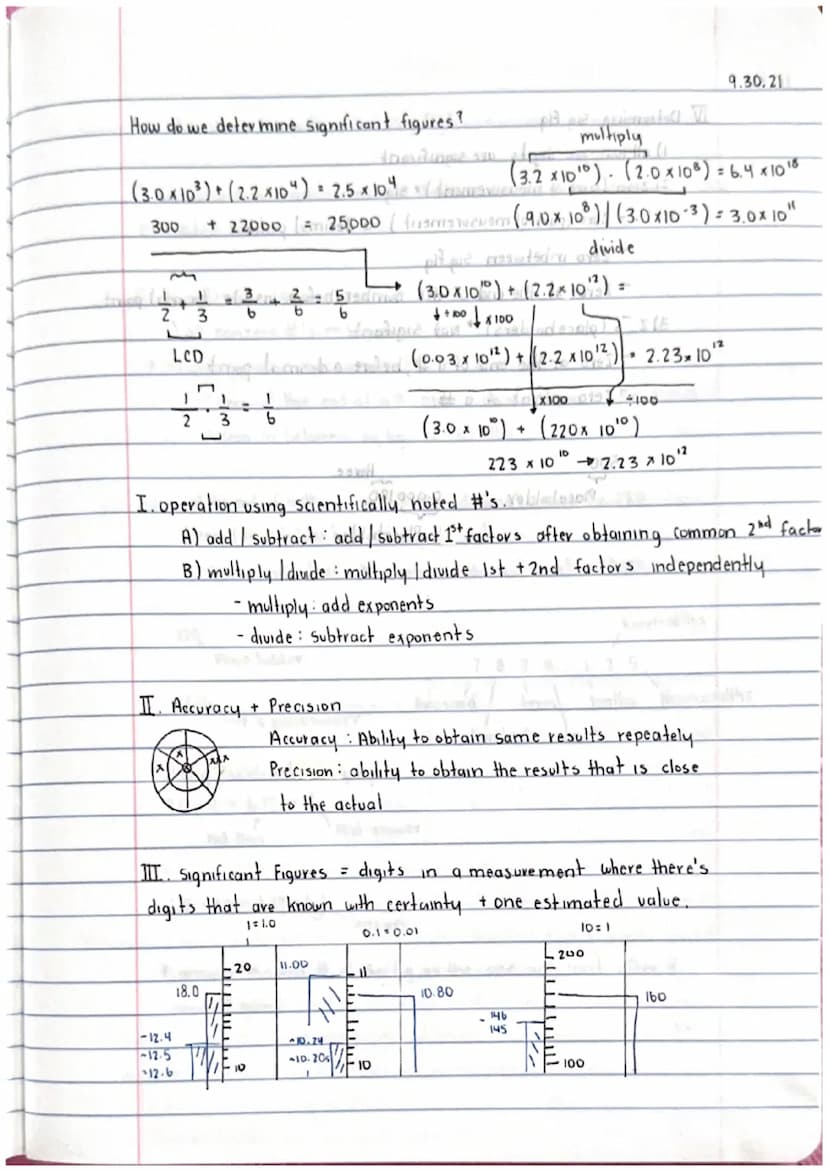 9.30.21
How do we determine significant figures?
multiply
(3.2 x10¹⁰) . (2.0 x10⁸) = 6.4 x10¹⁸
(3.0 x10³) + (2.2 x10⁴) = 2.5 x10⁴
300 + 22,000 = 25,000
(9.0 x 10⁸) / (3.0x10⁻³) = 3.0x 10¹¹
divide
1/2 + 1/3 = 3/6 + 2/6 = 5/6
LCD
(3.0 x10¹⁰) + (2.2x 10¹²) =
÷100 x100
(0.03 x 10¹²) + (2.2 x10¹²) = 2.23x 10¹²
x100 ÷100
1/2 . 1/3 = 1/6
(3.0 x 10¹⁰) + (220x 10¹⁰)
223 x 10¹⁰ → 2.23 x 10¹²
I. operation using scientifically noted #'s.
A) add / subtract : add / subtract 1st factors after obtaining common 2nd factor
B) multiply / divide : multiply / divide 1st + 2nd factors independently
- multiply: add exponents
- divide : subtract exponents
II. Accuracy + Precision
Accuracy : Ability to obtain same results repeately
Precision : ability to obtain the results that is close
to the actual
x x xxx
III. Significant Figures = digits in a measurement where there's
digits that are known with certainty + one estimated value.
1=1.0
0.1=0.01
10=1
20
18.0
-12.4
~12.5
~12.6
10
11.00
11
10.80
~10.24
~10.20
10
200
160
- 146
145
100